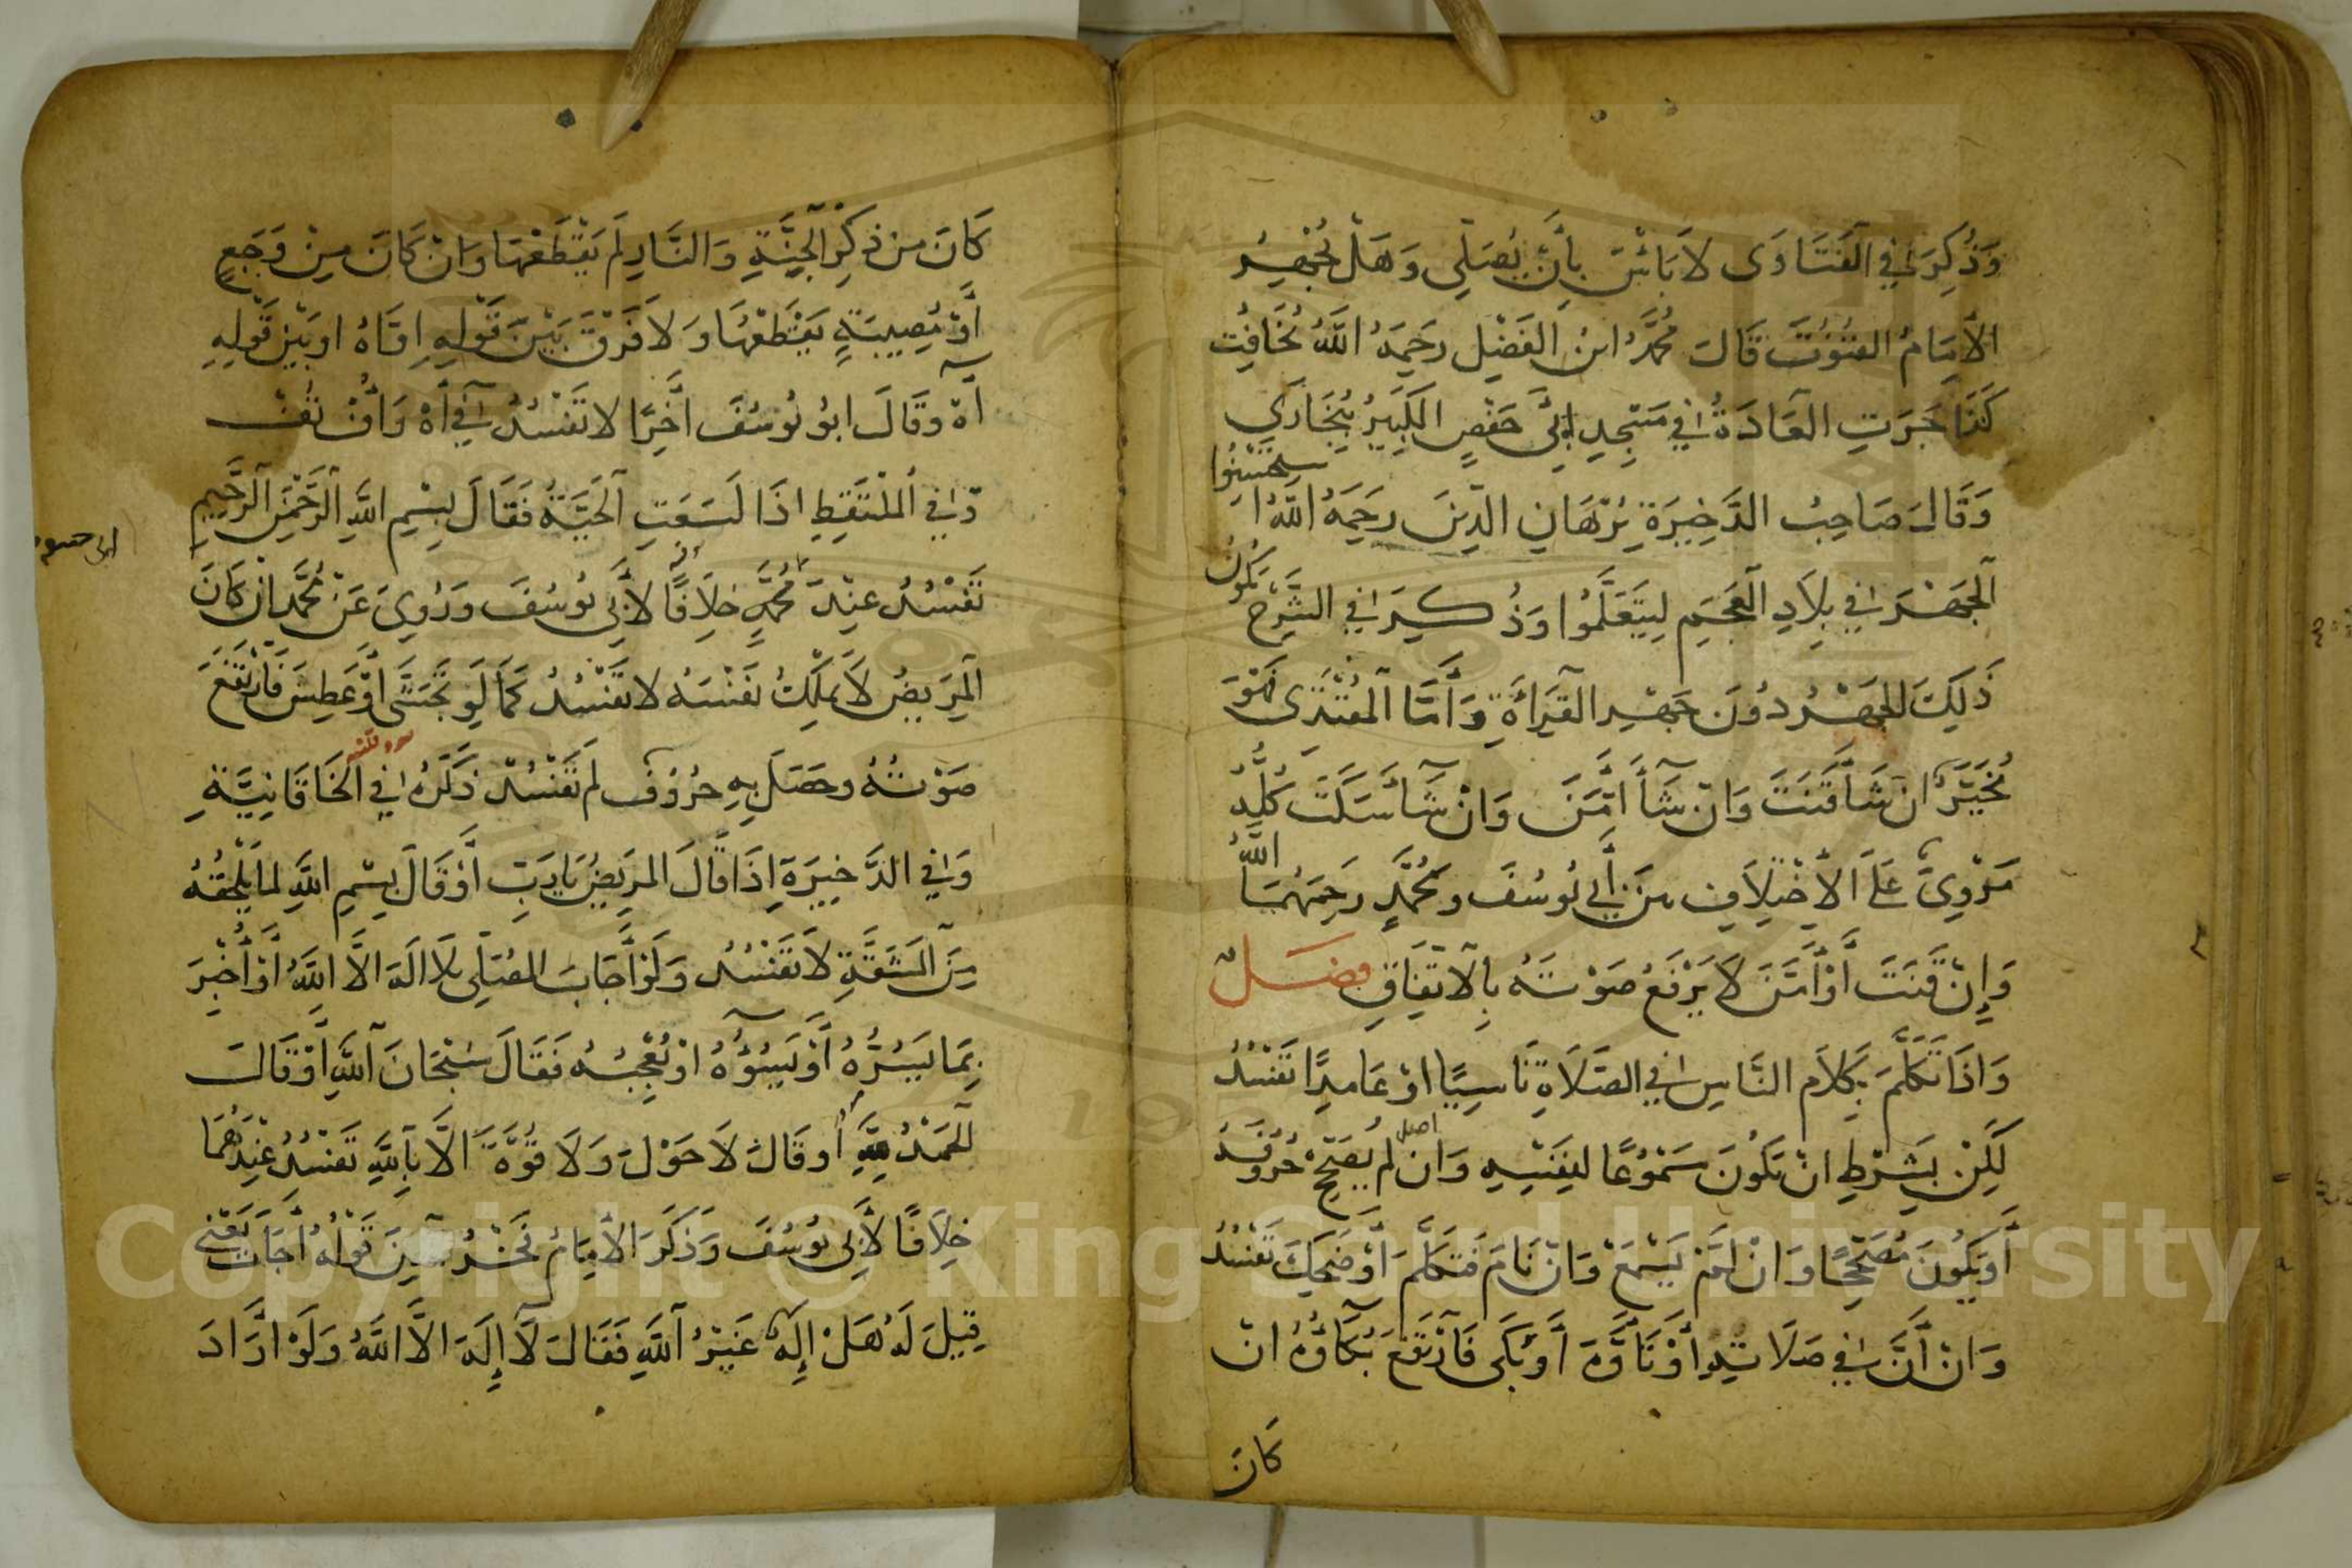 وَذُكِرَ فِي الْفَتَاوَى لَا بَأْسَ بِأَنْ يُصَلِّي وَهَلْ يُجْهِرُ
الْإِمَامُ الْقُنُوتَ قَالَ مُحَمَّدُ ابْنُ الْفَضْلِ رَحِمَهُ اللَّهُ يُخَافِتُ
كَذَا جَرَتِ الْعَادَةُ فِي مَسْجِدِ أَبِي حَفْصٍ الْكَبِيرُ بِبُخَارَى
وَقَالَ صَاحِبُ الذَّخِيرَةِ بُرْهَانِ الدِّينَ رَحِمَهُ اللَّهُ استحسنوا
الْجَهْرَ فِي بِلَادِ الْعَجَمِ لِيَتَعَلَّمُوا وَذُكِرَ فِي الشَّرْحِ يَكُونُ
ذَلِكَ الْجَهْرُ دُونَ جَهْرِ الْقِرَاءَةِ وَأَمَّا الْمُقْتَدَى فَهُوَ
مُخَيَّرٌ إِنْ شَا قَنَتَ وَانْ شَأَ أَمَّنَ وَانْ شَأ سَكَتَ كُلُّهُ
مَرْوِيٌّ عَلَى الْأَخْتِلَافِ مِنَ أَبِي يُوسُفَ وَمُحَمَّدٍ رَحِمَهُمَا اللَّهُ
وَإِنْ قَنَتَ أَوْ أَمَّنَ لَا يَرْفَعُ صَوْتَهُ بِالْاتِّفَاقِ فصل
وَاذَا تَكَلَّمَ بِكَلَامِ النَّاسِ فِي الصَّلَاةِ نَاسِيًا اوْ عَامِدًا تَفْسُدُ
لَكِنْ بِشَرْطِ انْ يَكُونَ مَسْمُوعًا لِنَفْسِهِ وَان لَمْ يُصَحِّحْ حُرُوفَهُ
أَوْ يَكُونَ مُصَحِّحًا وَانْ لَمْ يَسْمَعْ وَانْ نَامَ فَتَكَلَّمَ أَوْ ضَحِكَ تَفْسُدُ
وَانْ أَنَّ فِي صَلَاتِهِ أَوْ تَأَوَّهَ أَوْ بَكَى فَارْتَفَعَ بُكَاؤُهُ انْ
كَانَ
كَانَ مِنْ ذِكْرِ الْجَنَّةِ وَالنَّارِ لَمْ يَقْطَعْهَا وَانْ كَانَ مِنْ وَجَعٍ
أَوْ مُصِيبَةٍ يَقْطَعْهَا وَلَا فَرْقَ بَيْنَ قَوْلِهِ اوَّاهُ اوْ بَيْنِ قَوْلِهِ
آهْ وَقَالَ ابُو يُوسُفَ آخِرًا لَا تَفْسُدُ فِي أَهْ وَأُفْ تُفْ
وَفِي الْمُلْتَقِطِ اذَا لَسَعَتِ الْحَيَّةُ فَقَالَ بِسْمِ اللَّهِ الرَّحْمَنِ الرَّحِيمِ
تَفْسُدُ عِنْدَ مُحَمَّدٍ خِلَافًا لِأَبِي يُوسُفَ وَرُوِيَ عَنْ مُحَمَّدٍ انْ كَانَ
الْمَرِيضُ لَا يَمْلِكُ نَفْسَهُ لَا تَفْسُدُ كَمَا لَوْ تَجَشَّى أَوْ عَطِسَ فَارْتَفَعَ
صَوْتُهُ وَحَصَلَ بِهِ حُرُوف لَمْ تَفْسُدْ ذَكَرَهُ فِي الْخَاقَانِيَّةِ
وَفِي الذَّخِيرَةِ إِذَا قَالَ الْمَرِيضُ يَا رَبِّ أَوْ قَالَ بِسْمِ اللَّهِ لِمَا يَلْحَقُهُ
مِنَ الْمَشَقَّةِ لَا تَفْسُدُ وَلَوْ أَجَابَ الْمُصَلِّي بِلَا الَهَ الَّا اللَّهُ أَوْ أُخْبِرَ
بِمَا يَسُرُّهُ أَوْ يَسُوْؤُهُ اوْ يُعْجِبُهُ فَقَالَ سُبْحَانَ اللَّهِ أَوْ قَالَ
الْحَمْدُ لِلَّهِ أَوْ قَالَ لَا حَوْلَ وَلَا قُوَّةَ الَّا بِاللَّهِ تَفْسُدُ عِنْدَهُمَا
خِلَافًا لِأَبِي يُوسُفَ وَذَكَرَ الْأِمَامُ قَوْلُهُ أَجَابَ يَعْنِي
قِيلَ لَهُ هَلْ إِلَهٌ غَيْرُ اللَّهِ فَقَالَ لَا إِلَهَ الَّا اللَّهُ وَلَوْ أَرَادَ
Copyright © King Saud University